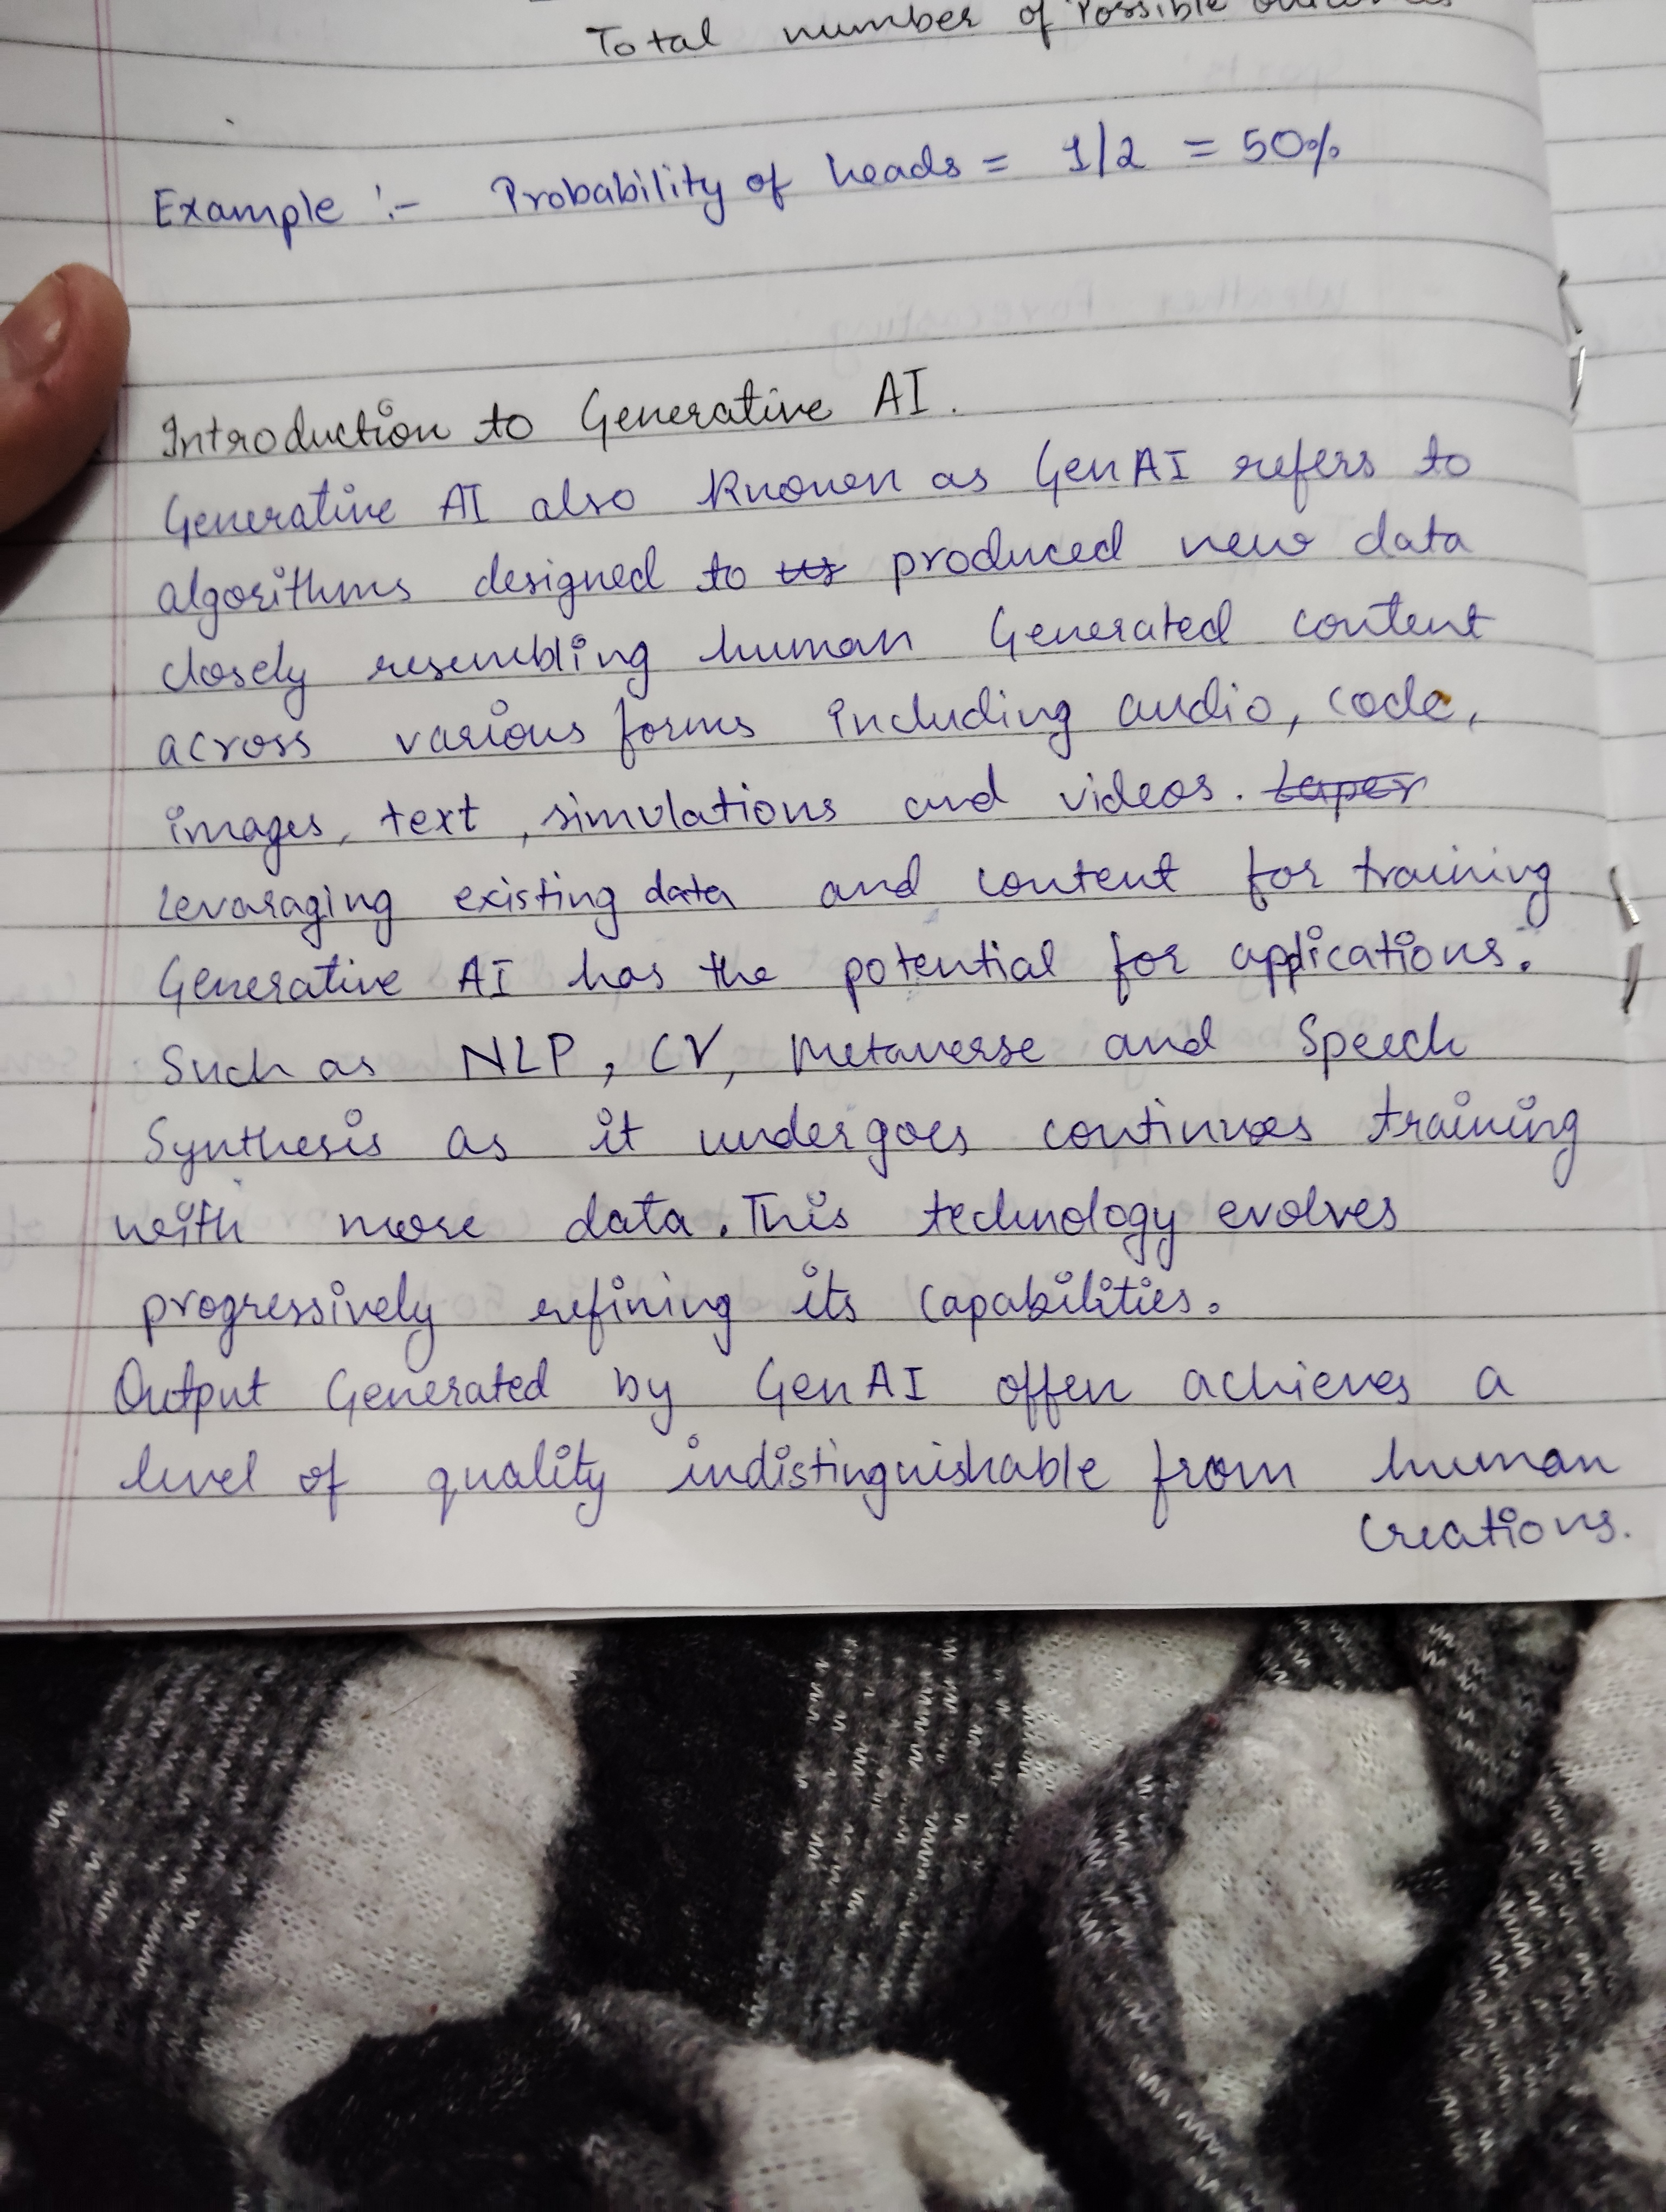 Total number of Possible outcomes
Example :- Probability of heads = 1/2 = 50%
Introduction to Generative AI.
Generative AI also known as GenAI refers to
algorithms designed to produced new data
closely resembling human Generated content
across various forms including audio, code,
images, text, simulations and videos.
Levaraging existing data and content for training
Generative AI has the potential for applications.
Such as NLP, CV, Metaverse and Speech
Synthesis as it undergoes continues training
with more data. This technology evolves
progressively refining its capabilities.
Output Generated by GenAI offen achieves a
level of quality indistinguishable from human
creations.